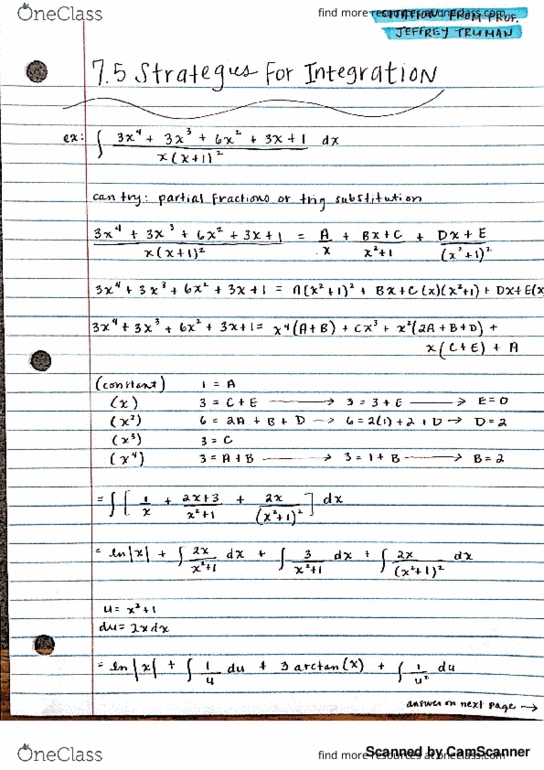 OneClass
find more resources at oneclass.com
CITATION FROM PROF.
JEFFREY TRUMAN
7.5 Strategies For Integration
ex: ∫ (3x⁴ + 3x³ + 6x² + 3x + 1)/(x(x+1)²) dx
can try: partial fractions or trig substitution
(3x⁴ + 3x³ + 6x² + 3x + 1)/(x(x+1)²) = A/x + (Bx+C)/(x²+1) + (Dx+E)/(x²+1)²
3x⁴ + 3x³ + 6x² + 3x + 1 = A(x²+1)² + Bx+C(x)(x²+1) + Dx+E(x
3x⁴ + 3x³ + 6x² + 3x + 1 = x⁴(A+B) + Cx³ + x²(2A+B+D) +
x(C+E) + A
(constant) 1 = A
(x) 3 = C+E → 3 = 3+E → E=0
(x²) 6 = 2A + B + D → 6 = 2(1)+2+D → D=2
(x³) 3 = C
(x⁴) 3 = A+B → 3 = 1+B → B=2
= ∫ [ 1/x + (2x+3)/(x²+1) + 2x/(x²+1)² ] dx
= ln|x| + ∫ 2x/(x²+1) dx + ∫ 3/(x²+1) dx + ∫ 2x/(x²+1)² dx
u = x²+1
du = 2xdx
= ln|x| + ∫ 1/u du + 3 arctan(x) + ∫ 1/u² du
answer on next page →
OneClass
find more resources at oneclass.com
Scanned by CamScanner